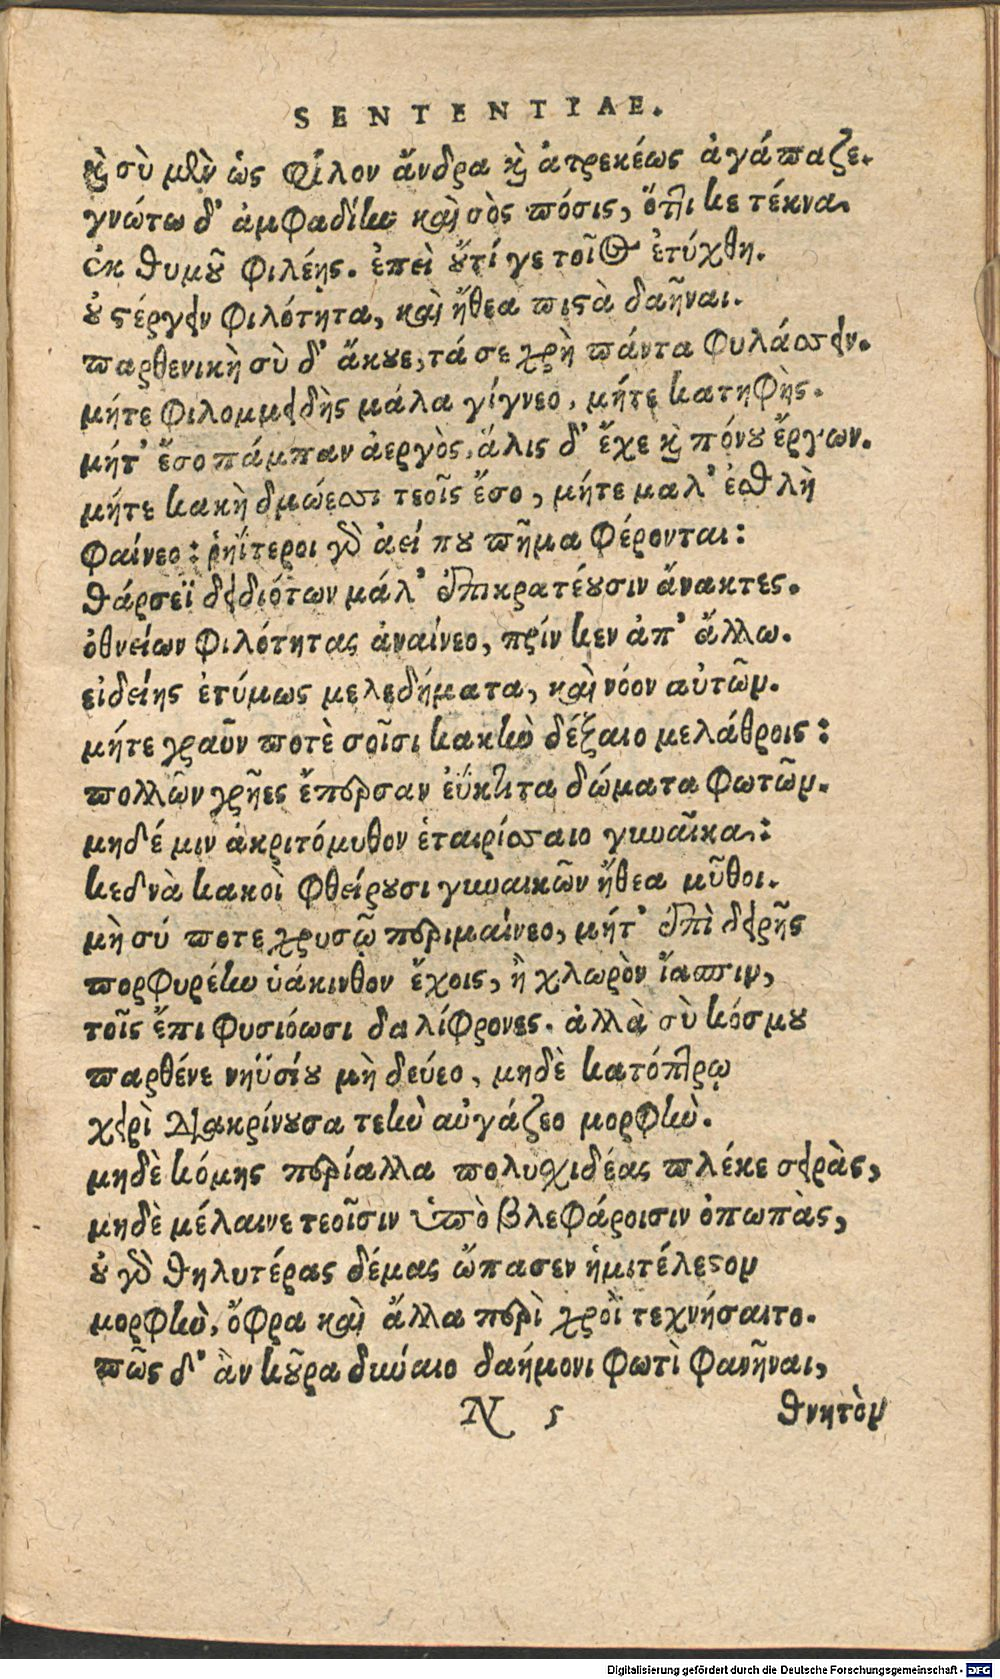 SENTENTIAE.
καὶ σὺ μὲν ὡς φίλον ἄνδρα καὶ ἀτρεκέως ἀγάπαζε.
γνώτω δ᾽ ἀμφαδίην καὶ σὸς πόσις, ὅττι κε τέκνα
ἐκ θυμοῦ φιλέῃς. ἐπεὶ οὔτί γε τοῖος ἐτύχθη.
οὐ στέργειν φιλότητα, καὶ ἤθεα πιστὰ δαῆναι.
παρθενικὴ σὺ δ᾽ ἄκουε, τά σε χρὴ πάντα φυλάσσειν.
μήτε φιλομμειδὴς μάλα γίγνεο, μήτε κατηφὴς.
μήτ᾽ ἔσο πάμπαν ἀεργὸς, ἅλις δ᾽ ἔχε καὶ πόνου ἔργων.
μήτε κακὴ δμώεσσι τεοῖς ἔσο, μήτε μαλ᾽ ἐσθλὴ
φαίνεο: ῥηΐτεροι γὰρ ἀεί που πῆμα φέρονται:
θάρσεϊ δειδιότων μάλ᾽ ἐπικρατέουσιν ἄνακτες.
ὀθνείων φιλότητας ἀναίνεο, πρίν κεν ἀπ᾽ ἄλλω.
εἰδείης ἐτύμως μελεδήματα, καὶ νόον αὐτῶν.
μήτε γραῦν ποτὲ σοῖσι κακὴν δέξαιο μελάθροις:
πολλῶν γρῆες ἔπερσαν ἐΰκτιτα δώματα φωτῶν.
μηδέ μιν ἀκριτόμυθον ἑταιρίσσαιο γυναῖκα:
κεδνὰ κακοὶ φθείρουσι γυναικῶν ἤθεα μῦθοι.
μὴ σύ ποτε χρυσῷ περιμαίνεο, μήτ᾽ ἐπὶ δειρῆς
πορφυρέην ὑάκινθον ἔχοις, ἢ χλωρὸν ἴασπιν,
τοῖς ἔπι φυσιόωσι δαλίφρονες. ἀλλὰ σὺ κόσμου
παρθένε νηϋσίου μὴ δεύεο, μηδὲ κατόπτρῳ
χειρὶ διακρίνουσα τεὴν αὐγάζεο μορφὴν.
μηδὲ κόμης περίαλλα πολυσχιδέας πλέκε σειρὰς,
μηδὲ μέλαινε τεοῖσιν ὑπὸ βλεφάροισιν ὀπωπὰς,
οὐ γὰρ θηλυτέρας δέμας ὤπασεν ἡμιτέλεστον
μορφὴν, ὄφρα καὶ ἄλλα περὶ χροῒ τεχνήσαιτο.
πῶς δ᾽ ἂν κοῦρα δύναιο δαήμονι φωτὶ φανῆναι,
N 5 θνητὸν
Digitalisierung gefördert durch die Deutsche Forschungsgemeinschaft - DFG